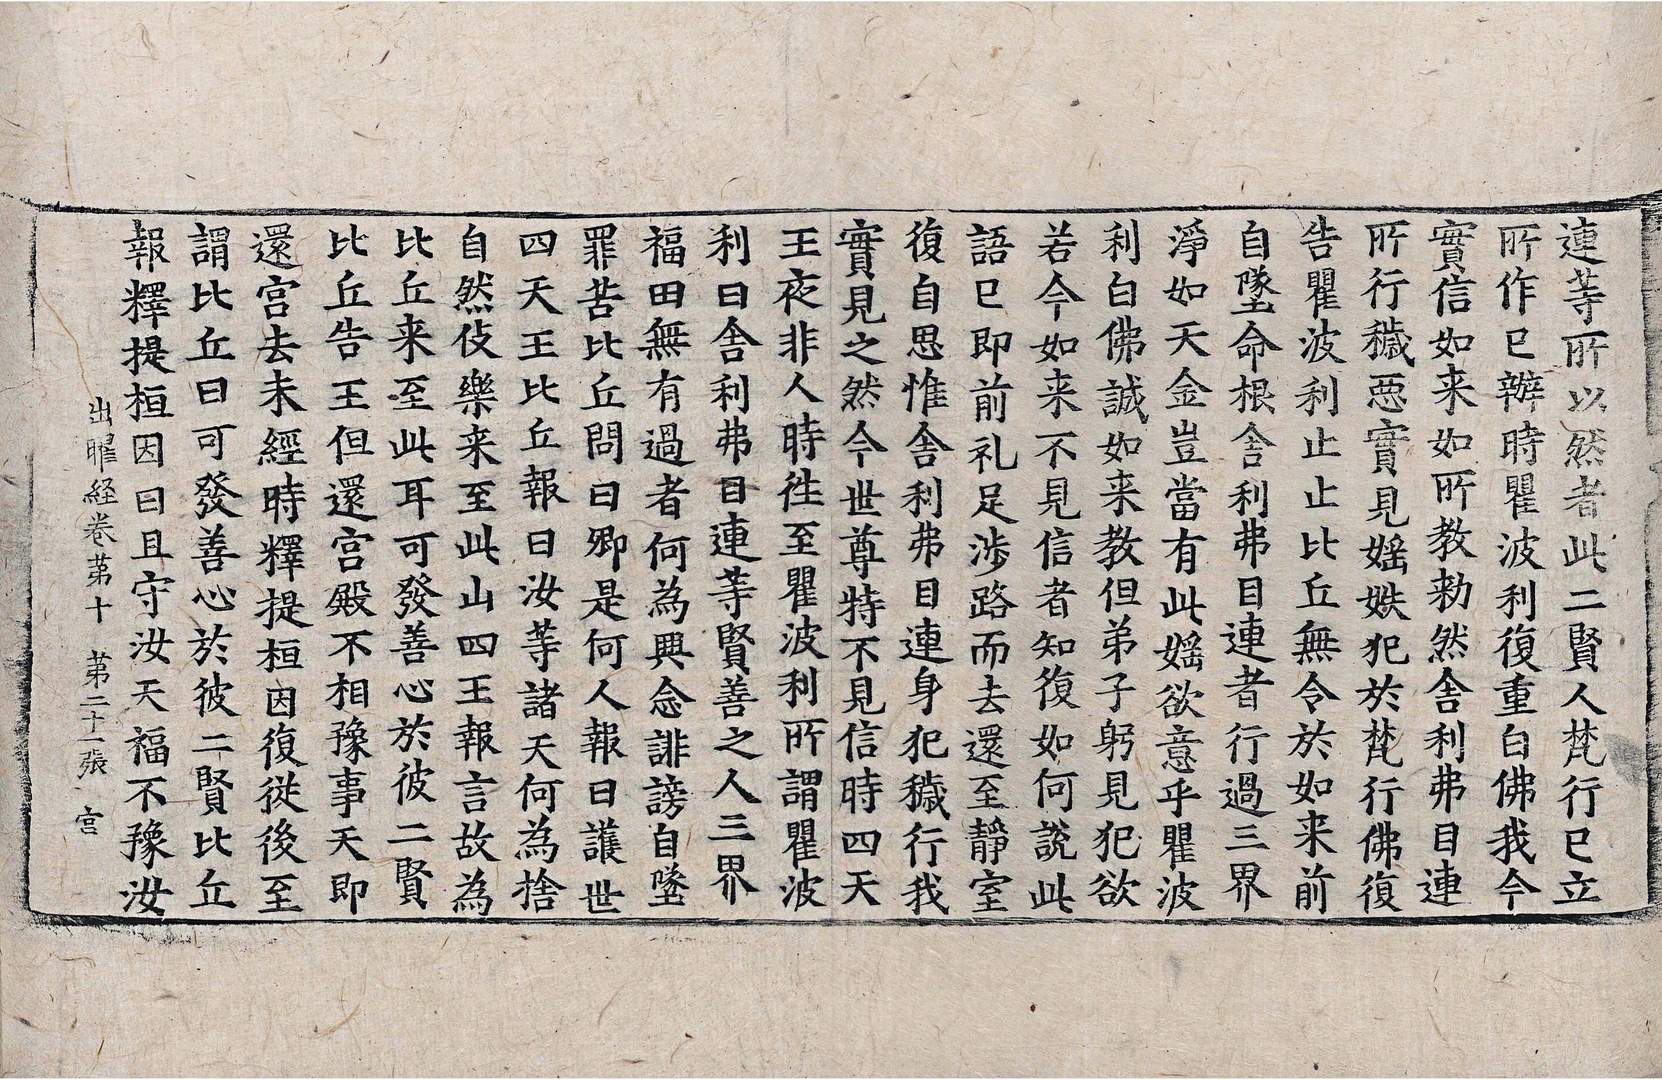 連等所以然者此二賢人梵行已立
所作已辦時瞿波利復重白佛我今
實信如来如所教勑然舎利弗目連
所行穢惡實見婬妷犯於梵行佛復
告瞿波利止止比丘無令於如来前
自墜命根舎利弗目連者行過三界
淨如天金豈當有此婬欲意乎瞿波
利白佛誠如来教但弟子躬見犯欲
若今如来不見信者知復如何說此
語已即前礼足涉路而去還至靜室
復自思惟舎利弗目連身犯穢行我
實見之然今世尊特不見信時四天
王夜非人時徃至瞿波利所謂瞿波
利曰舎利弗目連等賢善之人三界
福田無有過者何為興念誹謗自墜
罪苦比丘問曰卿是何人報曰護世
四天王比丘報曰汝等諸天何為捨
自然伎樂来至此山四王報言故為
比丘来至此耳可發善心於彼二賢
比丘告王但還宫殿不相豫事天即
還宫去未經時釋提桓因復從後至
謂比丘曰可發善心於彼二賢比丘
報釋提桓因曰且守汝天福不豫汝
出曜経卷苐十　苐二十一張　宫